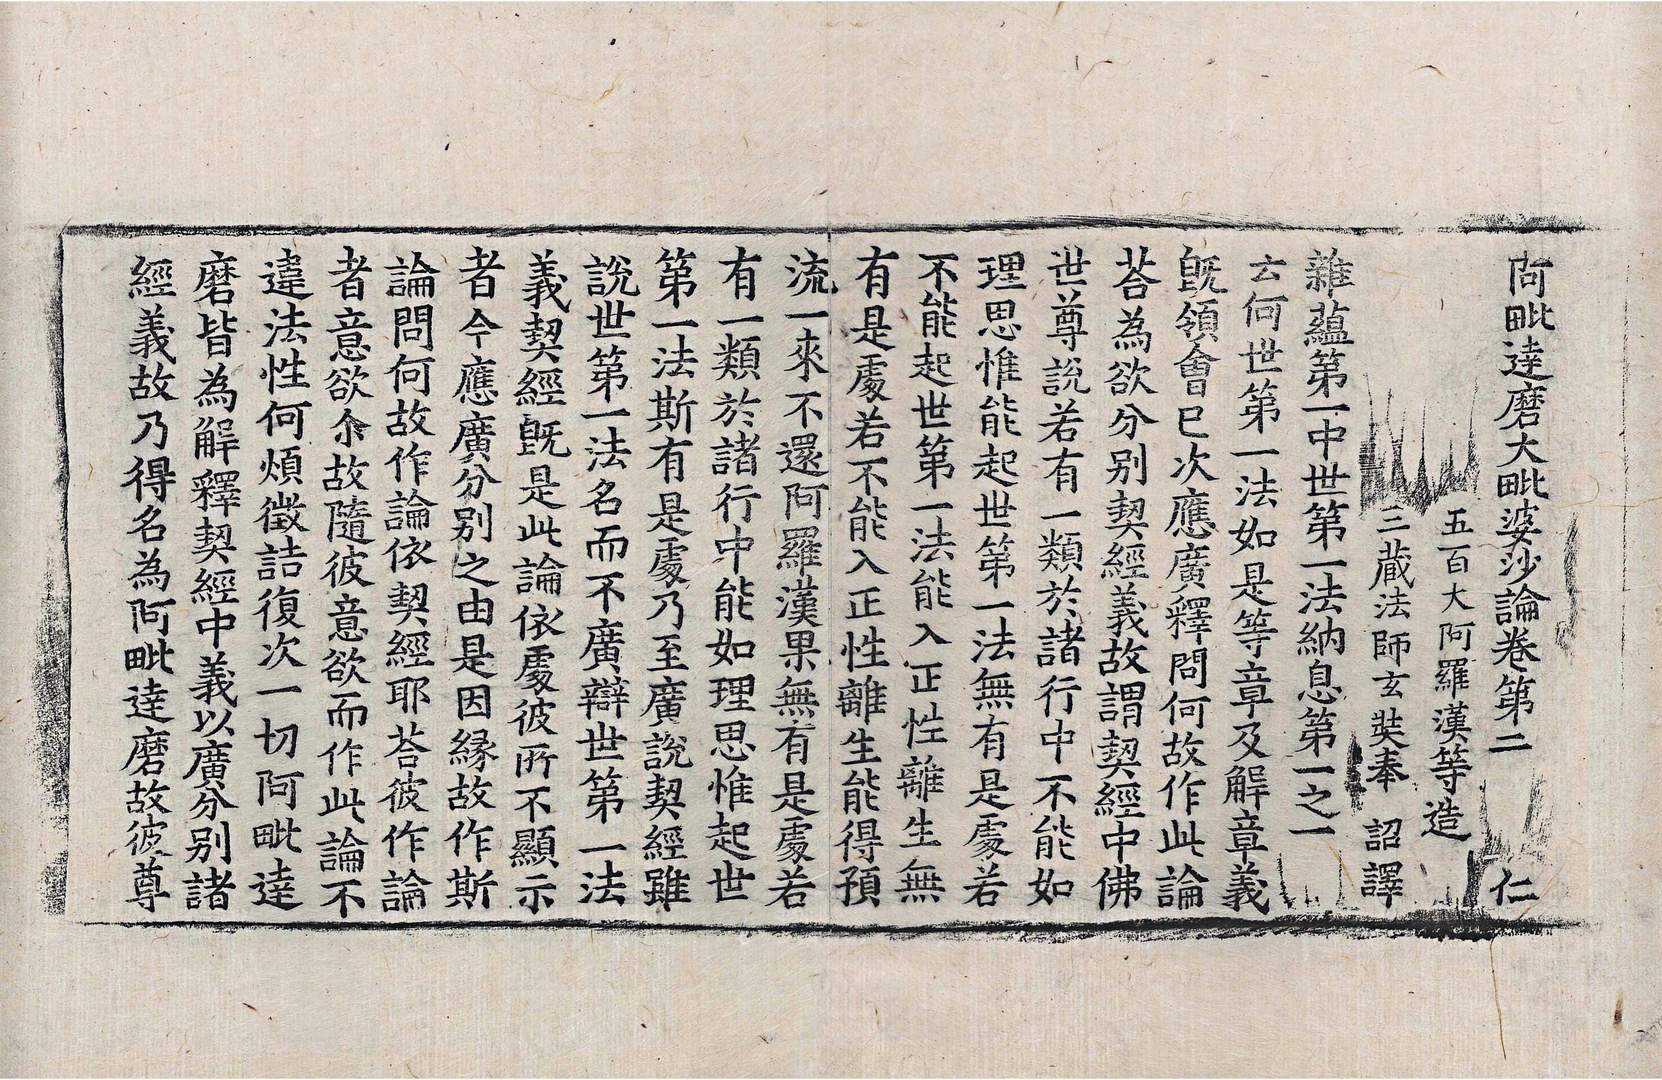 阿毗達磨大毗婆沙論卷第二　仁
五百大阿羅漢等造
三藏法師玄奘奉　詔譯
雜蘊第一中世第一法納息第一之一
云何世第一法如是等章及解章義
旣領會已次應廣釋問何故作此論
荅為欲分別契經義故謂契經中佛
世尊說若有一類於諸行中不能如
理思惟能起世第一法無有是處若
不能起世第一法能入正性離生無
有是處若不能入正性離生能得預
流一來不還阿羅漢果無有是處若
有一類於諸行中能如理思惟起世
第一法斯有是處乃至廣說契經雖
說世第一法名而不廣辯世第一法
義契經旣是此論依處彼所不顯示
者今應廣分別之由是因緣故作斯
論問何故作論依契經耶荅彼作論
者意欲尒故隨彼意欲而作此論不
違法性何煩徵詰復次一切阿毗達
磨皆為解釋契經中義以廣分別諸
經義故乃得名為阿毗達磨故彼尊